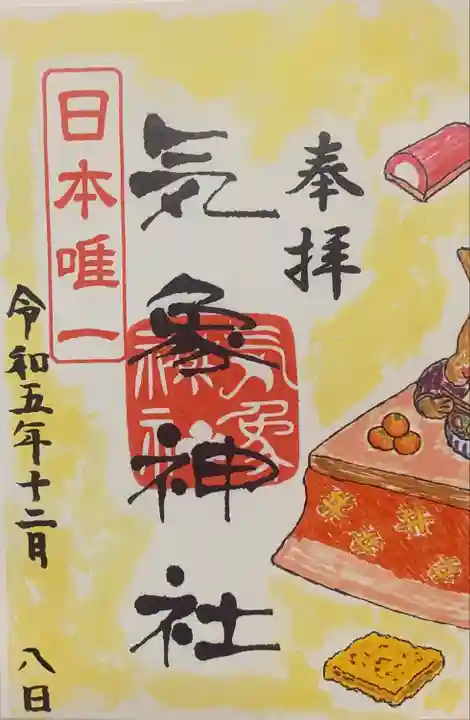 奉拝
気象神社
気象
神社
日本唯一
令和五年十二月 八日